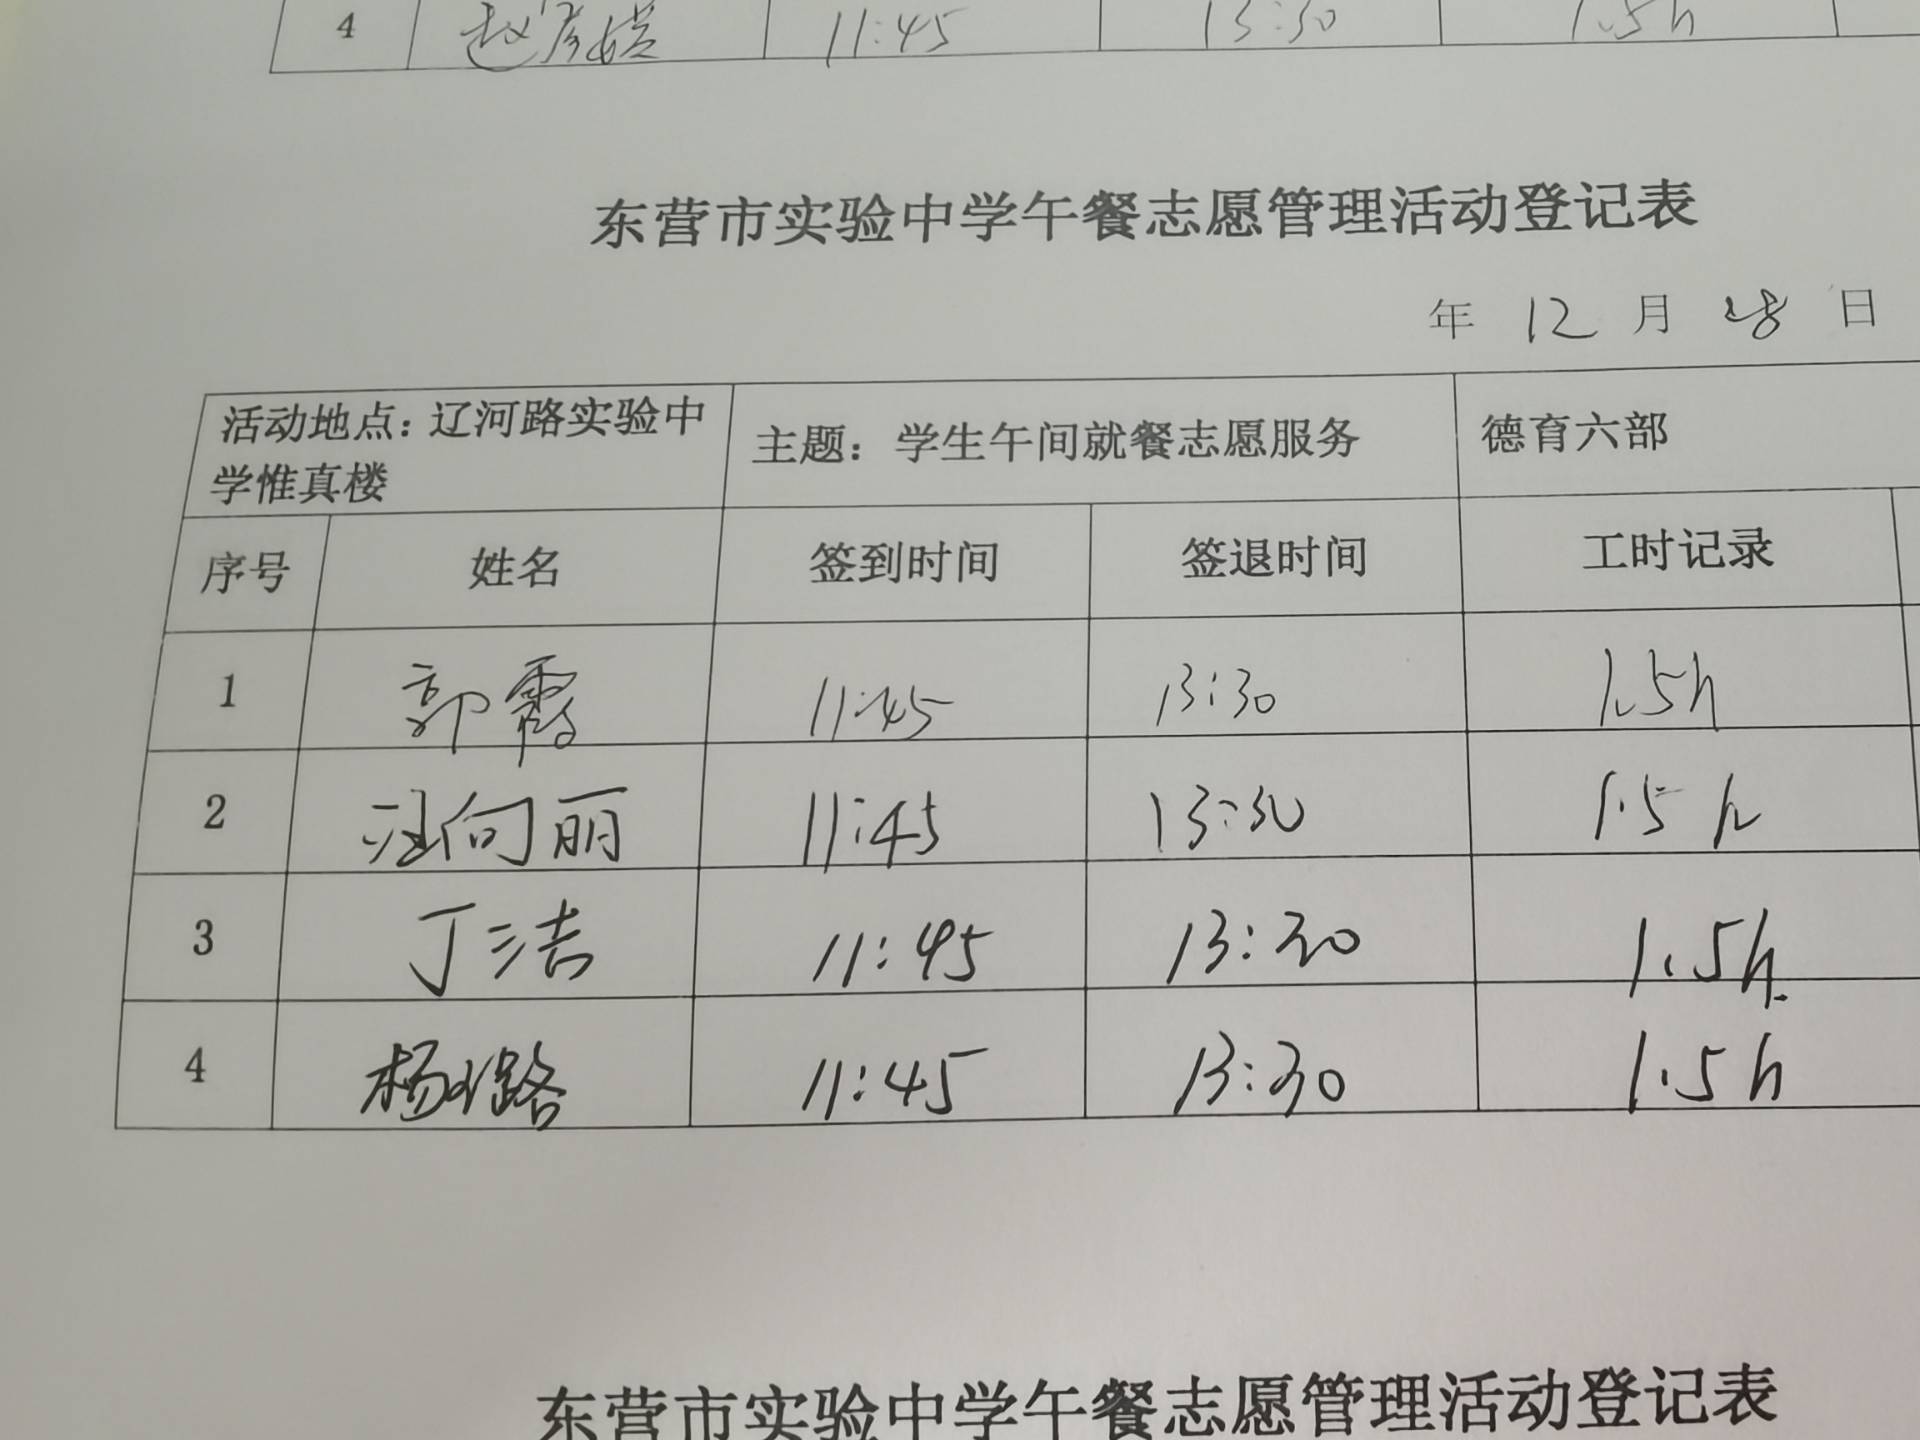 4 赵彦 11:45 13:30 1.5h
东营市实验中学午餐志愿管理活动登记表
年 12 月 28 日
活动地点：辽河路实验中
学惟真楼
主题：学生午间就餐志愿服务
德育六部
序号 姓名 签到时间 签退时间 工时记录
1 郭霞 11:45 13:30 1.5h
2 汪向丽 11:45 13:30 1.5h
3 丁洁 11:45 13:30 1.5h.
4 杨路 11:45 13:30 1.5h
东营市实验中学午餐志愿管理活动登记表